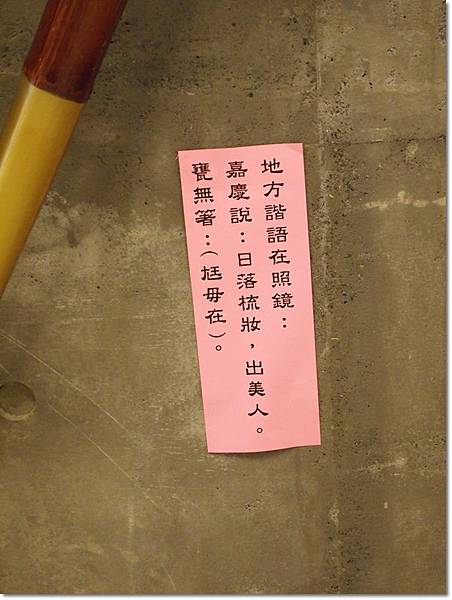 地方諧語在照鏡：
嘉慶說：日落梳妝，出美人。
甕無箸…（尪毋在）。